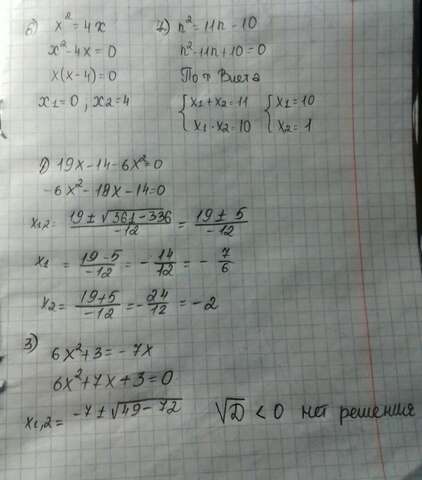 б) x² = 4x
x² - 4x = 0
x(x - 4) = 0
x₁ = 0 ; x₂ = 4
2) n² = 11n - 10
n² - 11n + 10 = 0
По т Виета
{ x₁ + x₂ = 11 { x₁ = 10
{ x₁ · x₂ = 10 { x₂ = 1
1) 19x - 14 - 6x² = 0
-6x² - 19x - 14 = 0
x₁,₂ = (19 ± √(361 - 336))/(-12) = (19 ± 5)/(-12)
x₁ = (19 - 5)/(-12) = -14/12 = -7/6
x₂ = (19 + 5)/(-12) = -24/12 = -2
3) 6x² + 3 = -7x
6x² + 7x + 3 = 0
x₁,₂ = -7 ± √(49 - 72) √D < 0 нет решения